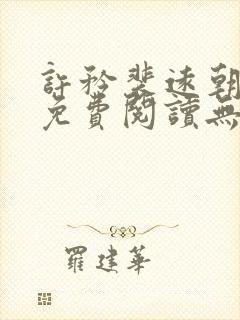 許矜裴速朝
免費閱讀無
羅建華